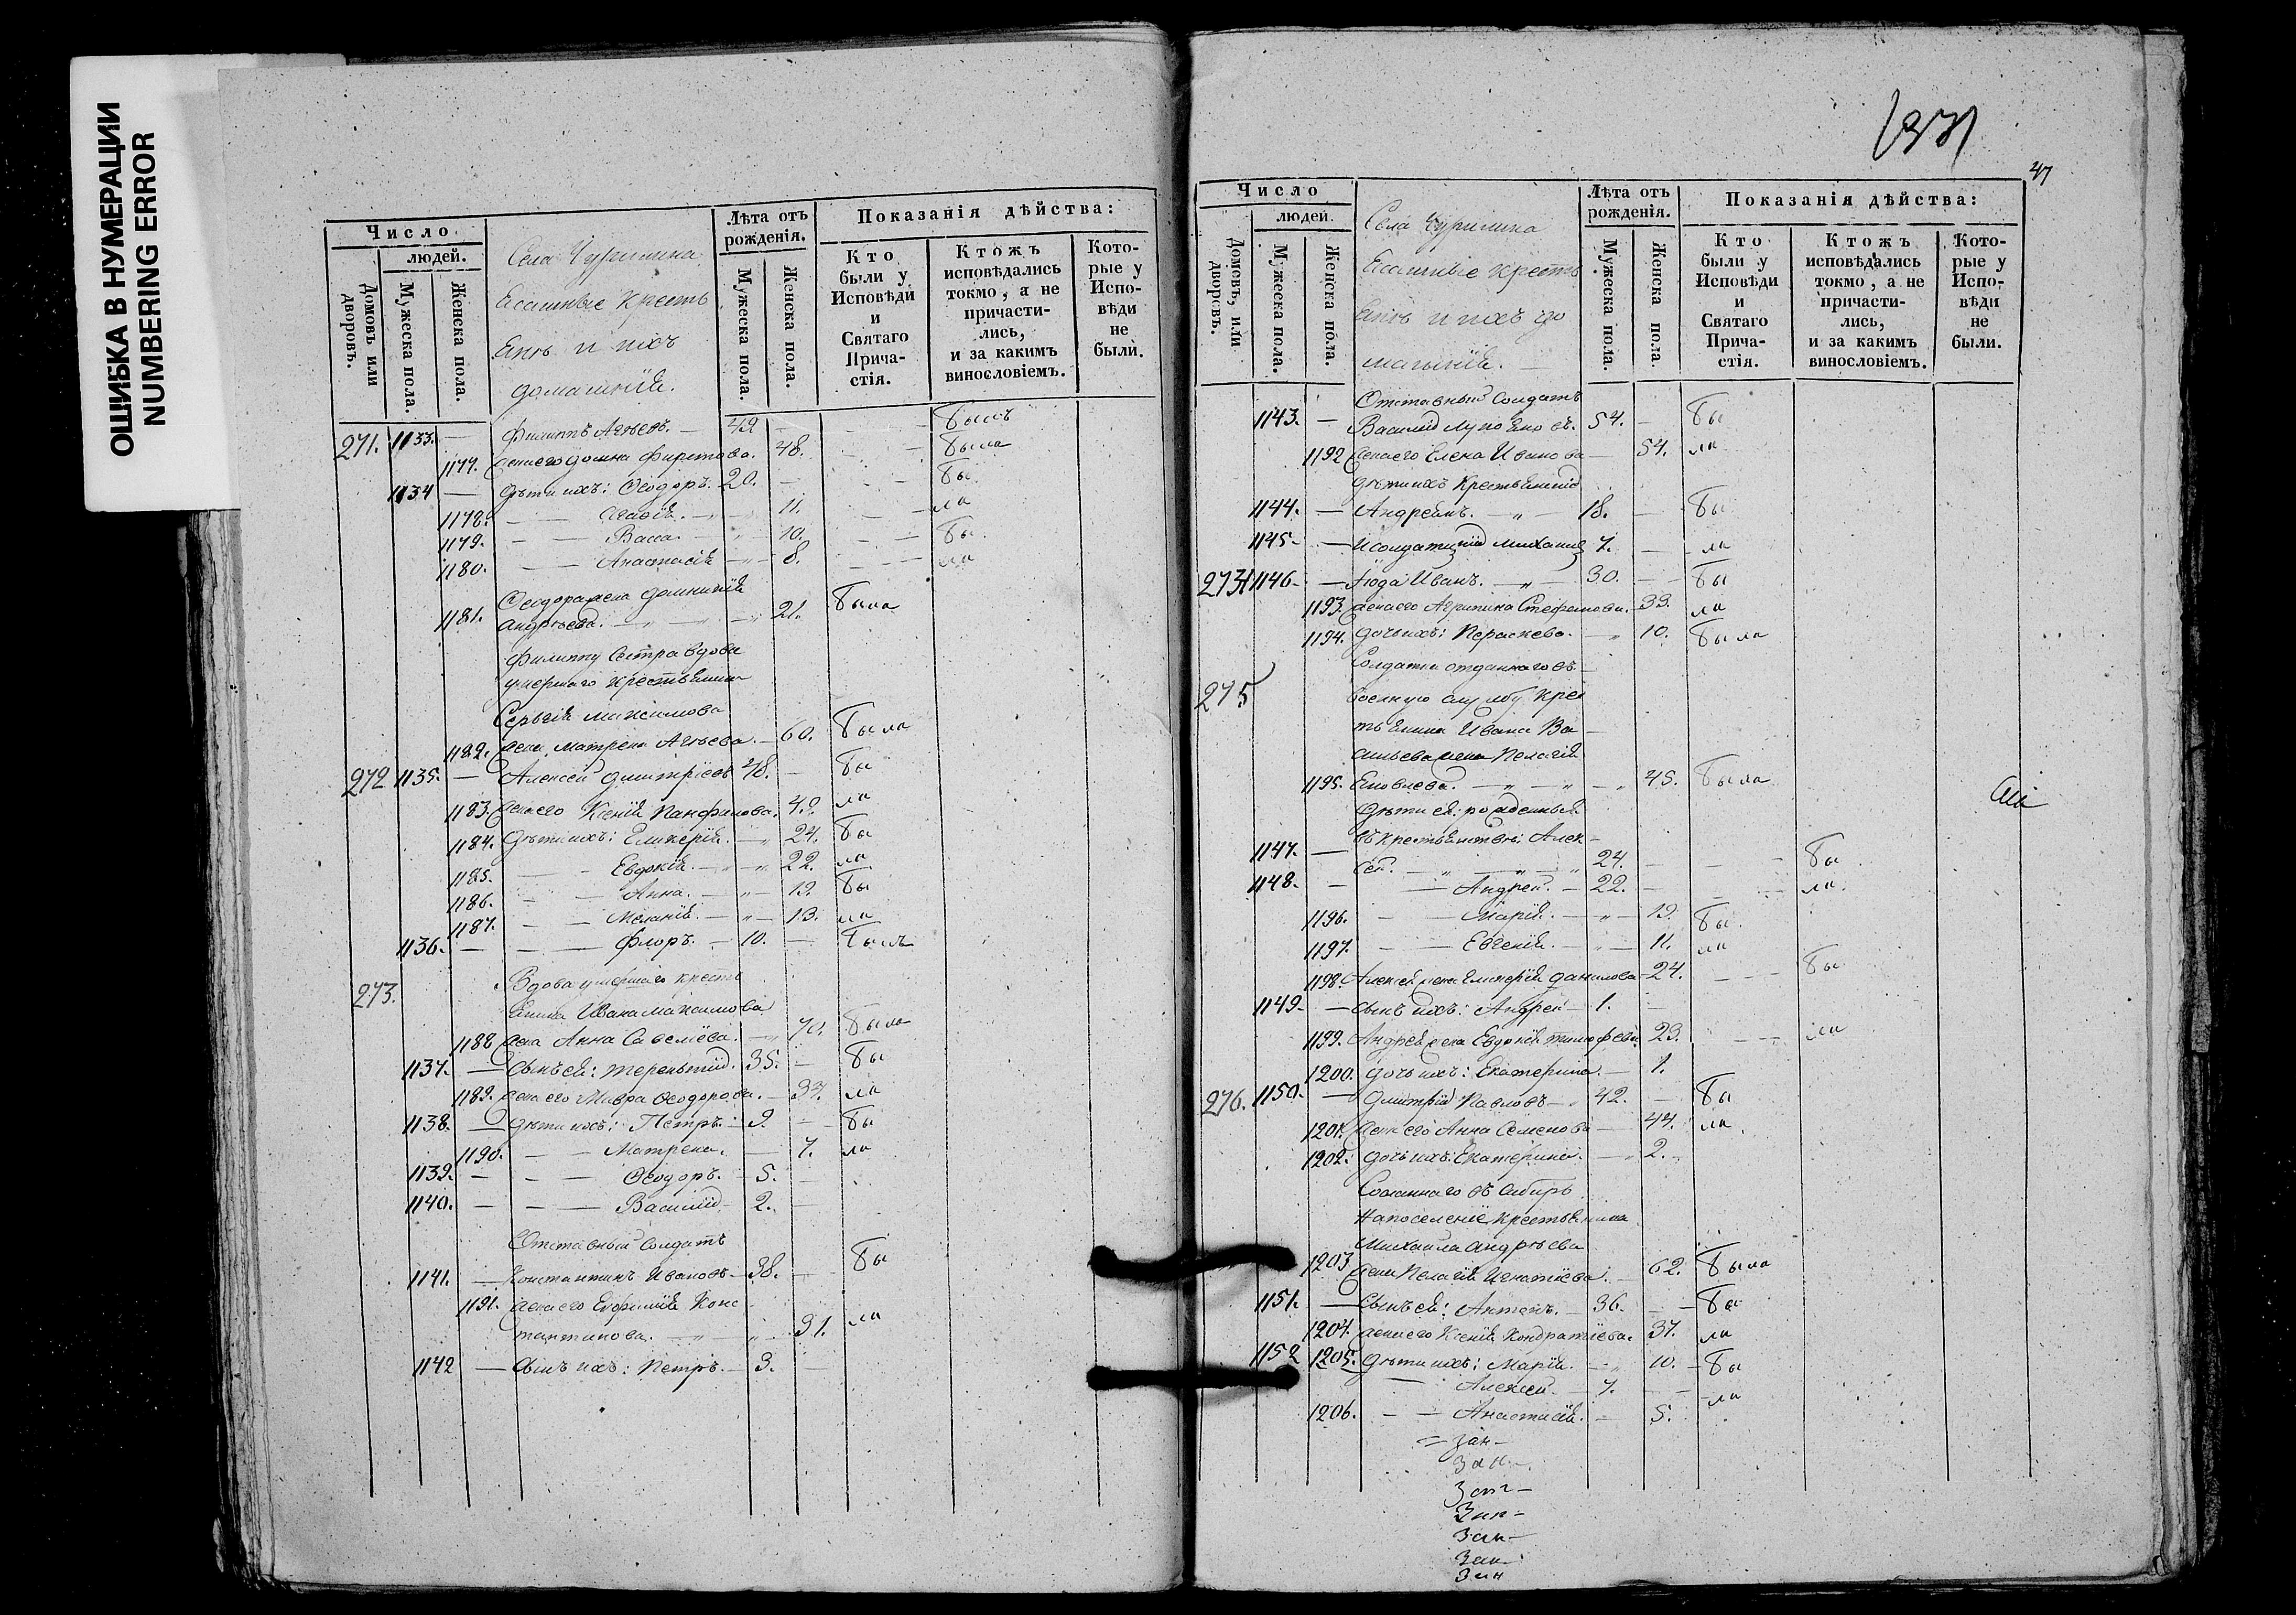 ОШИБКА В НУМЕРАЦИИ
NUMBERING ERROR
Число
людей.
Домовъ или дворовъ.
Мужеска пола.
Женска пола.
Села Чурилина
Ясашные Кресть
яне и ихъ
домашніе.
Лѣта отъ рожденія.
Мужеска пола.
Женска пола.
Показанія дѣйства:
Кто были у Исповѣди и Святаго Причастія.
Ктожъ исповѣдались токмо, а не причастились, и за какимъ винословіемъ.
Которые у Исповѣди не были.
271. 1133. — Филиппъ Агѣевъ. — 49 — Былъ
1177. жена его Домна Фирсова. 48. Была
1134 — Дѣти ихъ: Ѳеодоръ. 20. — Бы
1178. — — Агафія. — 11. — ла
1179. — — Васса. — 10. — Бы
1180. — — Анастасія — 8. — ла
Ѳеодора жена Домникія
1181. Андрѣева. — 21. Была
Филиппу Сестра вдова
умершаго крестьянина
Сергія Максимова
1182. жена Матрена Агѣева. — 60. Была
272 1135. — Алексей Димитріевъ 48. — Бы
1183. жена его Ксенія Панфилова. 49 ла
1184. Дѣти ихъ: Гликерія. — 24. Бы
1185. — Евдокія. — 22. ла
1186. — — Анна. — 19. Бы
1187. — — Меланія. — 13. ла
1136. — — — Флоръ. — 10. — Былъ
273. Вдова умершаго кресть
янина Ивана Максимова
1188 жена Анна Савеліева. — 70. Была
1137. — Сынъ ея: Терентій. 35. — Бы
1189. жена его Мавра Ѳеодорова. — 37. ла
1138. — Дѣти ихъ: Петръ. — 9. — Бы
1190. — — Матрена. — 7. ла
1139. — — — Ѳеодоръ. — 5. —
1140. — — — Василій — 2. —
Отставный Солдатъ
1141. — Константинъ Ивановъ — 38. — Бы
1191. жена его Евфимія Конс
тантинова. — 31. ла
1142 — Сынъ ихъ: Петръ. — 3. —
47
Число
людей.
Домовъ, или дворовъ.
Мужеска пола.
Женска пола.
Села Чурилина
Ясашные кресть
яне и ихъ до
машніе. —
Лѣта отъ рожденія.
Мужеска пола.
Женска пола
Показанія дѣйства:
Кто были у Исповѣди и Святаго Причастія.
Ктожъ исповѣдались токмо, а не причастились, и за какимъ винословіемъ.
Которые у Исповѣди не были.
Отставный Солдатъ
1143. — Василій 54. — Бы
1192 жена его Елена Иванова — 54. ла
Дѣти ихъ Крестьянскіе
1144. — Андреянъ. — 18. — Бы
1145. — и солдатскій Михаилъ 7. — ла
274 1146. — Іюда Иванъ. — 30. — Бы
1193. жена его Агрипина Стефанова. 33. ла
1194. Дочь ихъ: Параскева. — 10. Была
275 Солдатка отданнаго въ
военную службу крес
тьянина Ивана Ва
сильева жена Пелагія
1195. Яковлева. — 45. Была
Дѣти ея: рожденныя
1147. — въ крестьянствѣ: Алек
сей. — 24. — Бы
1148. — — Андрей. — 22. — ла
1196. — — Марія. — 19. Бы
1197. — — Евгенія. — 11. ла
1198 Алексея жена Гликерія Данилова 24. — Бы
1149 — Сынъ ихъ: Андрей — 1. —
1199. Андрея жена Евдокія Тимофеева. 23. — ла
1200. Дочь ихъ: Екатерина. — 1.
276. 1150. — Димитрій Павловъ — 42. — Бы
1201. жена его Анна Семенова — 44. ла
1202. Дочь ихъ: Екатерина. — 2.
Сосланнаго въ Сибирь
на поселеніе крестьянина
Михаила Андрѣева
1203 жена Пелагія Игнатіева. — 62. Была
1151. — Сынъ ея: Антонъ. — 36. — Бы
1204. жена его Ксенія Кондратіева. 37. ла
1152 1205. Дѣти ихъ: Марія. — 10. — Бы
— Алексей. — 7. — ла
1206. — — Анастасія. — 5.